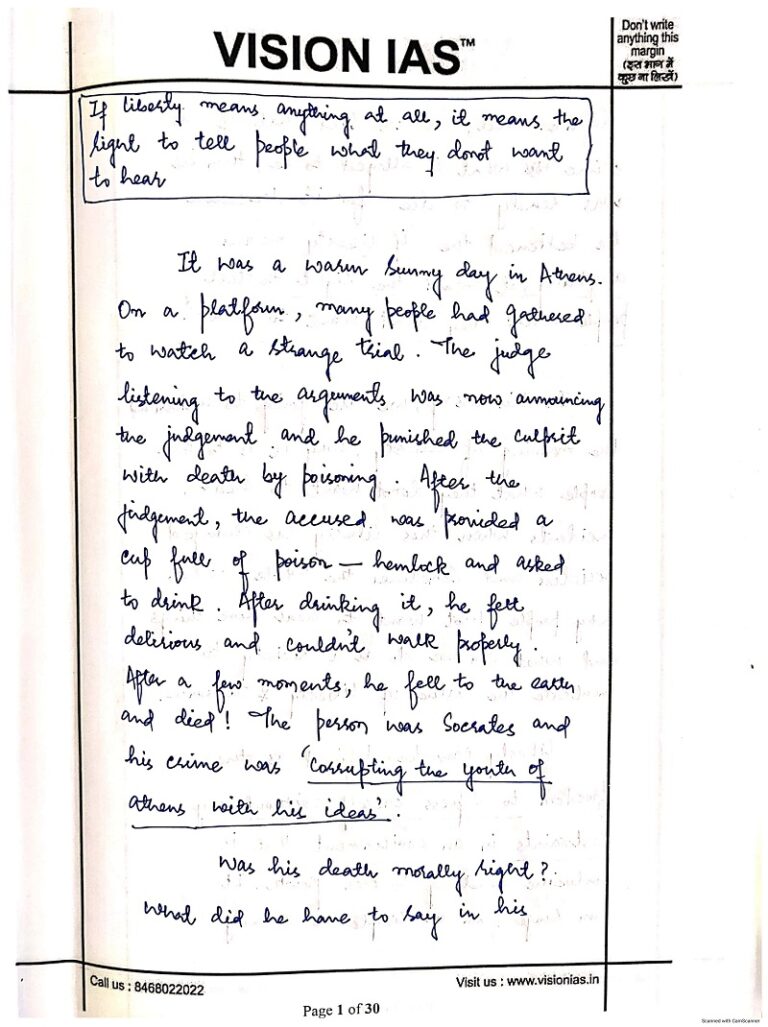 VISION IAS™
Don't write
anything this
margin
(इस भाग में
कुछ ना लिखें)
If liberty means anything at all, it means the
right to tell people what they donot want
to hear
It was a warm sunny day in Athens.
On a platform, many people had gathered
to watch a strange trial. The judge
listening to the arguments was now announcing
the judgement and he punished the culprit
with death by poisoning. After the
judgement, the accused was provided a
cup full of poison – hemlock and asked
to drink. After drinking it, he felt
delirious and couldn't walk properly.
After a few moments, he fell to the earth
and died! The person was Socrates and
his crime was 'corrupting the youth of
athens with his ideas'.
Was his death morally right?
What did he have to say in his
Call us : 8468022022
Visit us : www.visionias.in
Page 1 of 30
Scanned with CamScanner